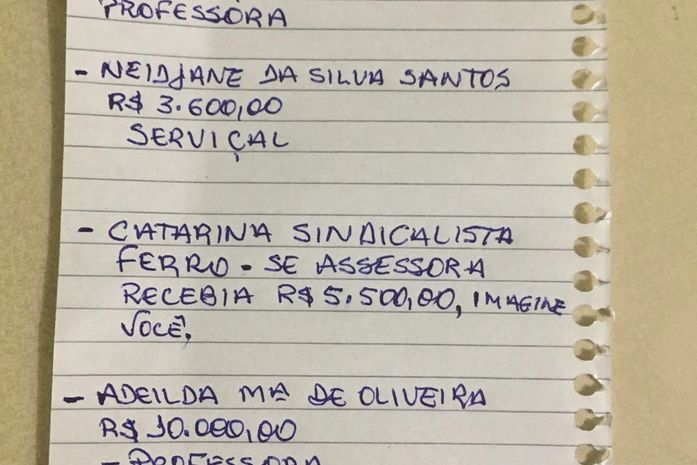 PROFESSORA
- NEIDJANE DA SILVA SANTOS
R$ 3.600,00
SERVIÇAL
- CATARINA SINDICALISTA
FERRO - SE ASSESSORA
RECEBIA R$ 5.500,00, IMAGINE
VOCÊ,
- ADEILDA Mª DE OLIVEIRA
R$ 10.000,00
- PROFESSORA